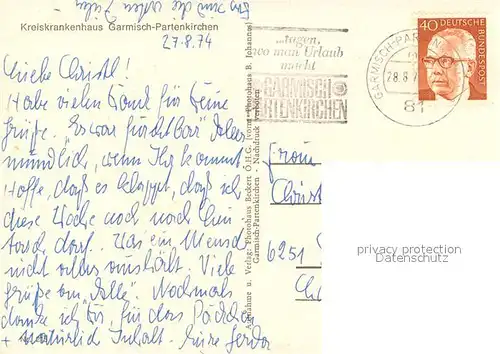 Kreiskrankenhaus Garmisch-Partenkirchen
27.8.74
Liebe Christl!
Habe vielen Dank für Deine
Grüße. "Es war furchtbar"
mündlich, wenn Ihr kommt
Hoffe, daß es klappt, daß ich
diese Woche noch nach
darf. Was ein Mensch
nicht alles aushält. Viele
Grüße an Alle. Nochmals
danke ich Dir, für das Päckchen
+ natürlich Inhalt. Eure Gerda
...tagen,
wo man Urlaub
macht
GARMISCH
PARTENKIRCHEN
GARMISCH-PARTEN
28.8.7
81
40 DEUTSCHE
BUNDESPOST
Aufnahme u. Verlag: Photohaus Beckert O.H.G. (vorm. Photohaus B. Johannes)
Garmisch-Partenkirchen - Nachdruck verboten
Frau
Christ
6251
privacy protection
Datenschutz